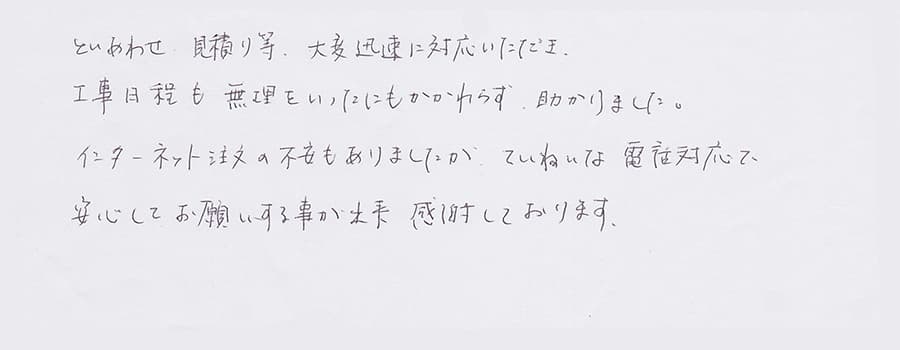 といあわせ 見積り等、大変迅速に対応いただき、
工事日程も 無理をいったにもかかわらず、助かりました。
インターネット注文の不安もありましたが、ていねいな 電話対応で、
安心して お願いする事が出来 感謝しております。